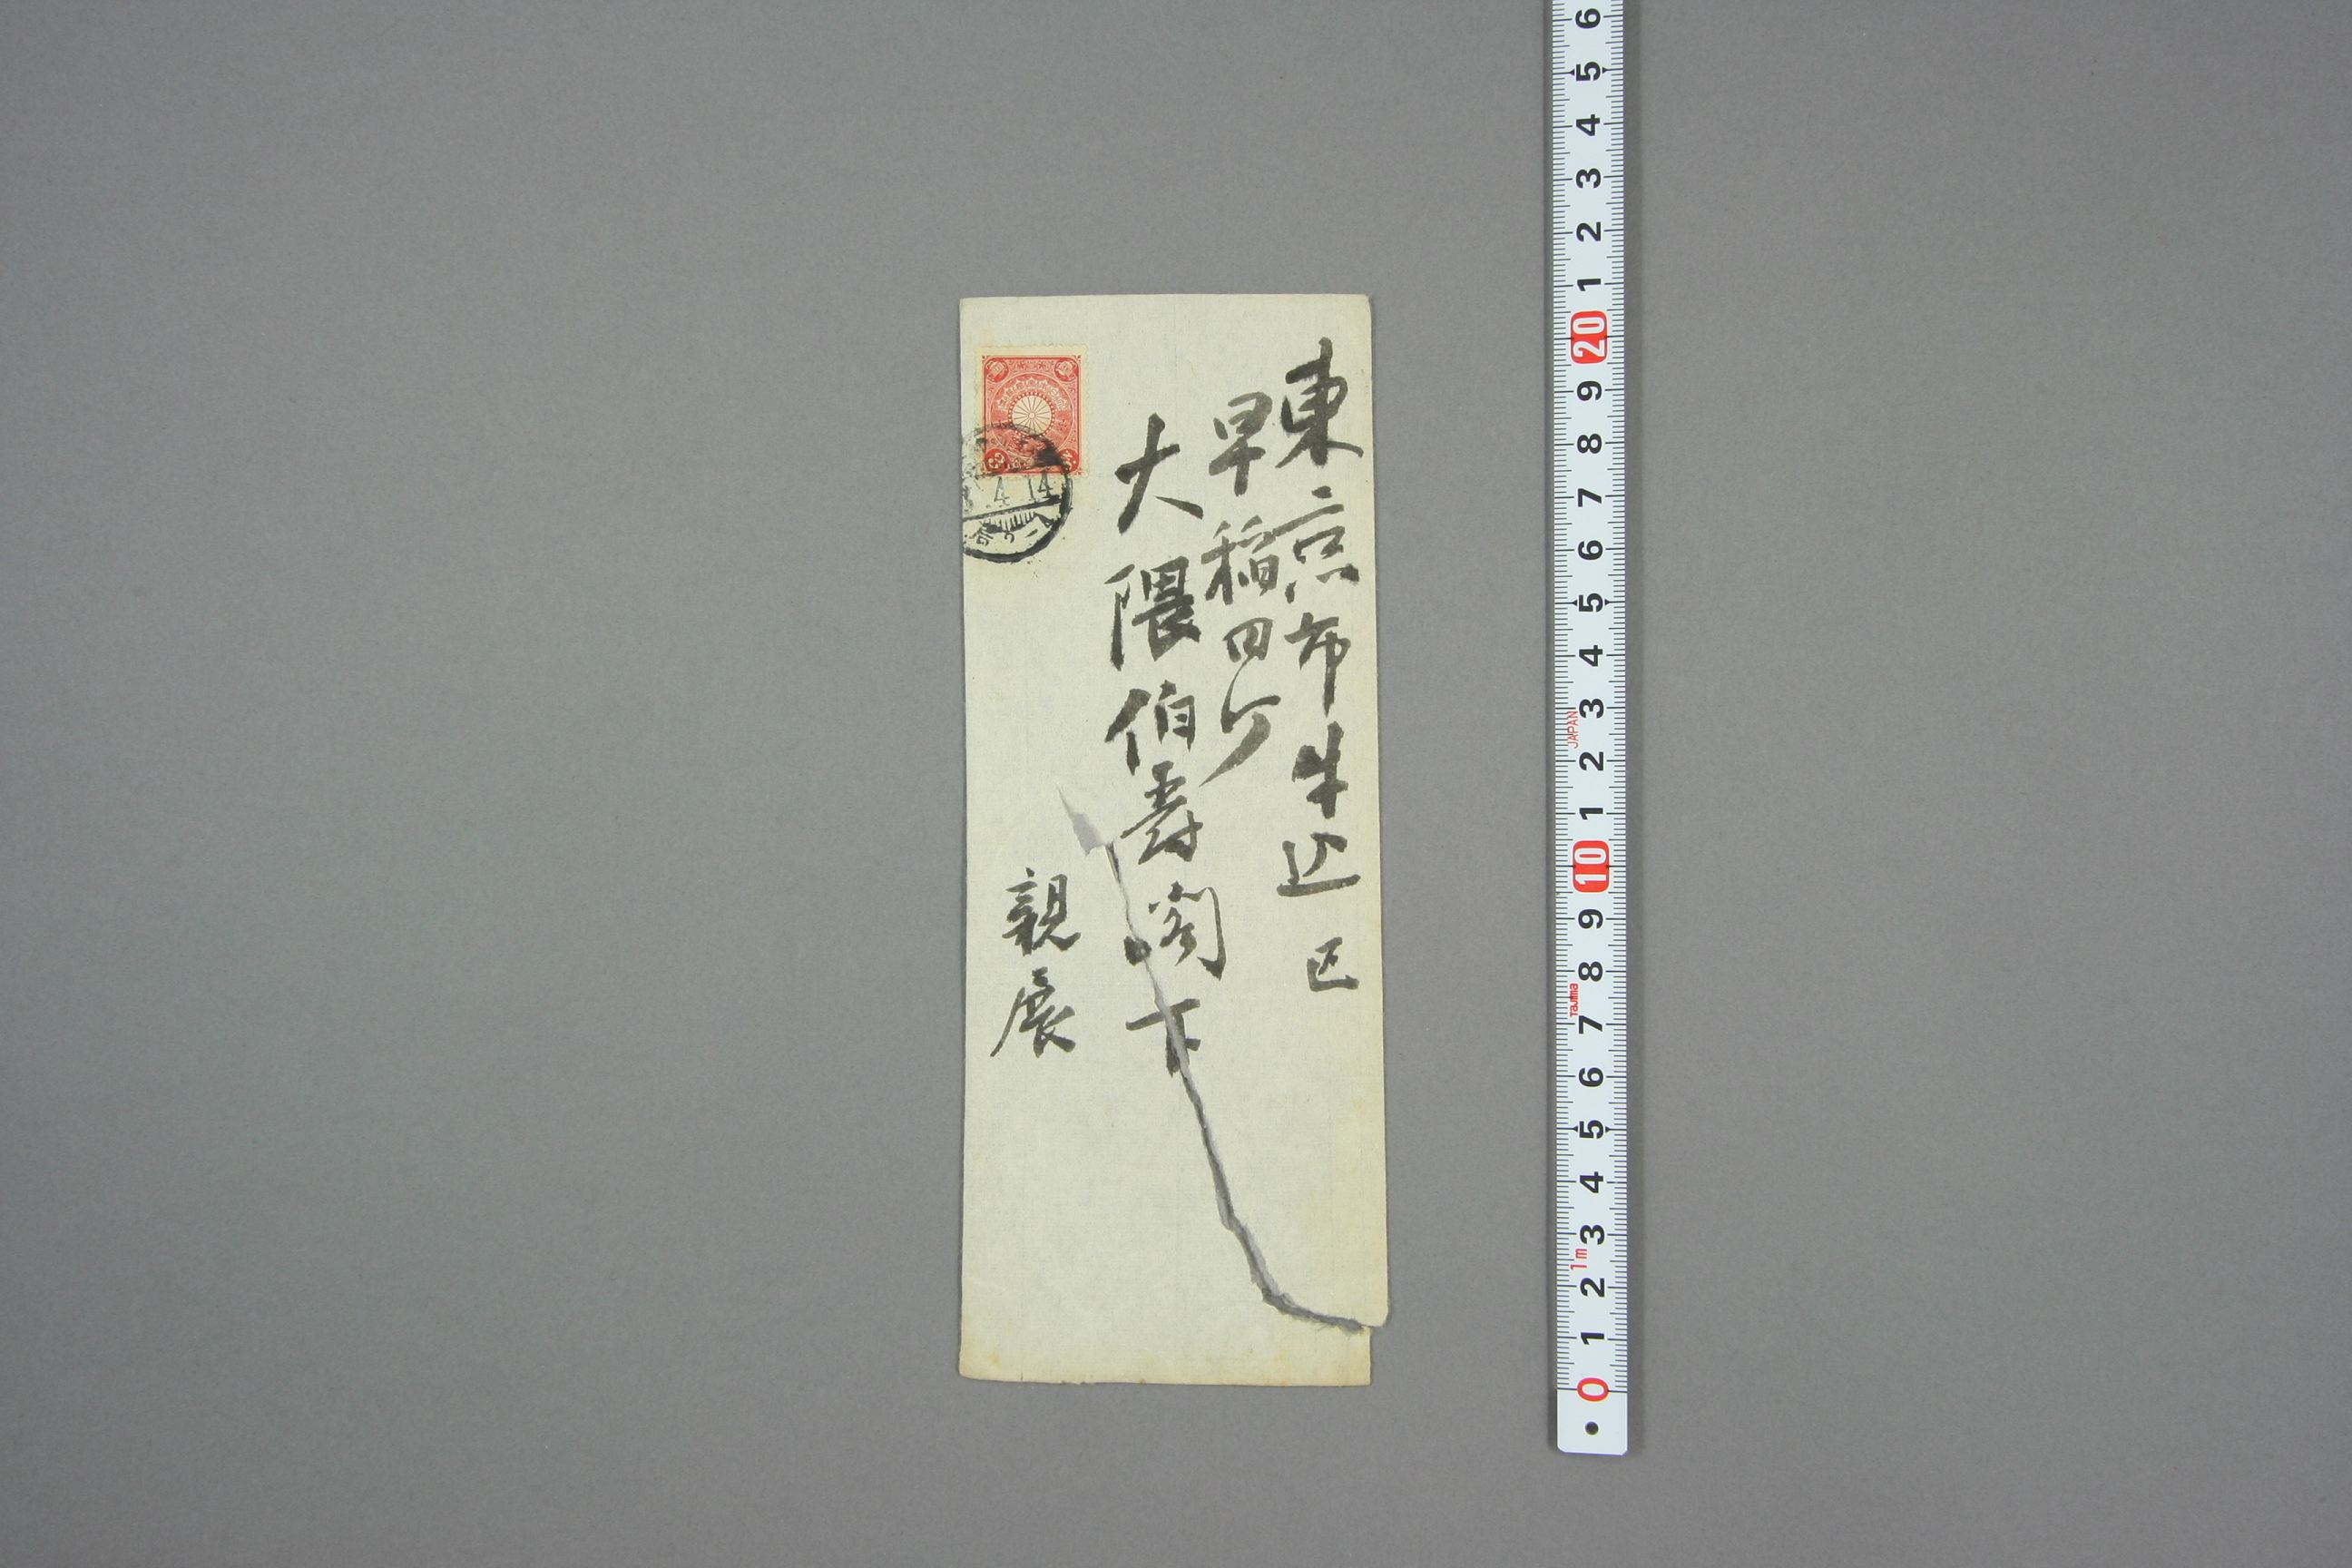 東京市牛込区
早稲田町
大隈伯爵閣下
親展
4 14
6
5
4
3
2
1
20
9
8
7
6
5
4
3
JAPAN
2
1
10
9
8
Tajima
7
6
5
4
3
1m
2
1
0